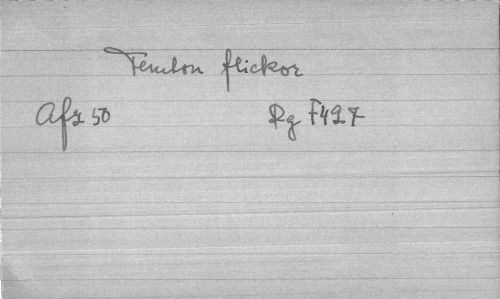 Femton flickor
Afz 50 Rg F497